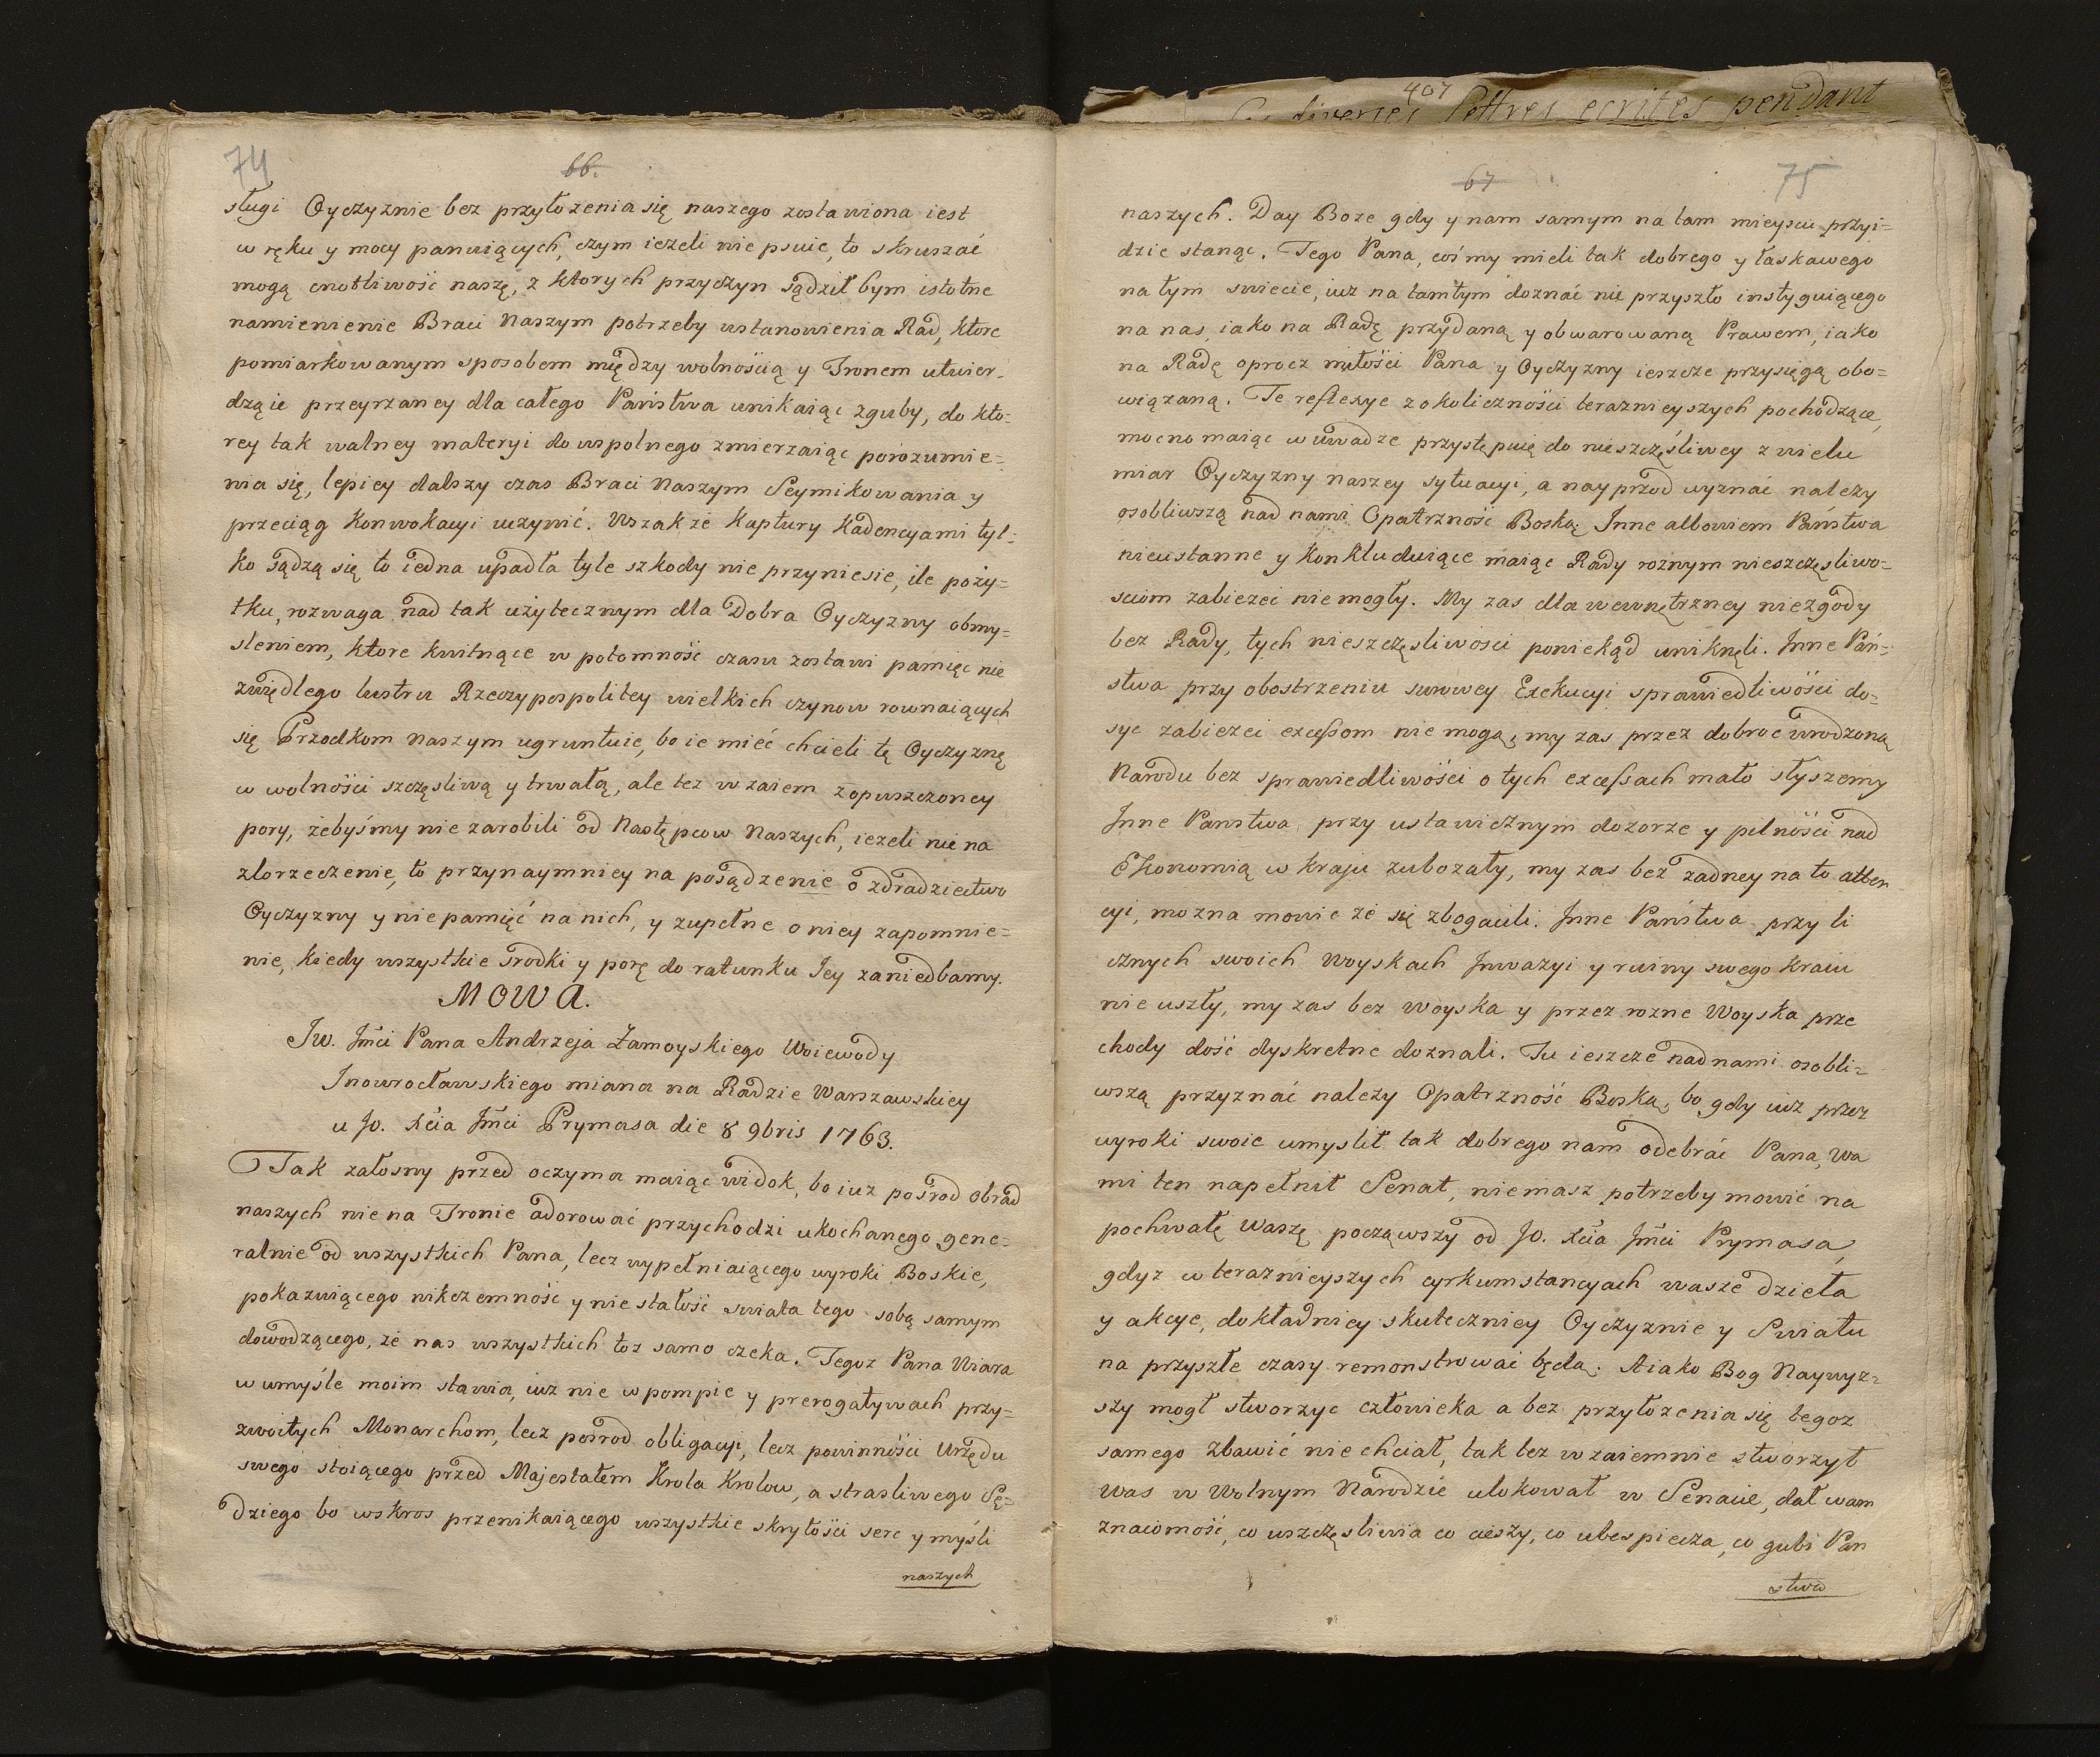 74
66.
sługi Oyczyznie bez przyłozenia się naszego zostawiona iest
w ręku y mocy panuiących, czym iezeli nie psuie, to skruszać
mogą cnotliwość naszę, z ktorych przyczyn sądził bym istotne
namienienie Braci Naszym potrzeby ustanowienia Rad, ktore
pomiarkowanym sposobem między wolnością y Tronem utwier-
dzą ie przeyrzaney dla całego Państwa unikaiąc zguby, do kto-
rey tak walney materyi do wspolnego zmierzaiąc porozumie=
nia się, lepiey dalszy czas Braci Naszym Seymikowania y
przeciąg Konwokacyi uczynić. Wszakze Kaptury Kadencyami tyl=
ko sądzą się to iedna upadła tyle szkody nie przyniesie, ile poży=
tku, rozwaga nad tak użytecznym dla Dobra Oyczyzny obmy=
sleniem, ktore kwitnące w potomność czasu zostawi pamięc nie
zwiędlego lustru Rzeczypospolitey wielkich czynow rownaiących
się Przodkom Naszym ugruntuie, bo ie mieć chcieli tę Oyczyznę
w wolności szczęsliwą y trwałą, ale tez wzaiem zopuszczoney
pory, żebyśmy nie zarobili od Następcow Naszych, iezeli nie na
zlorzeczenie, to przynaymniey na posądzenie o zdradziectwo
Oyczyzny y niepamięć na nich, y zupełne o niey zapomnie=
nie, kiedy wszystkie srodki y porę do ratunku Jey zaniedbamy.
MOWA.
Jw. Jmci Pana Andrzeja Zamoyskiego Woiewody
Jnowrocławskiego miana na Radzie Warszawskiey
u Jo. Xcia Jmci Prymasa die 8 9bris 1763.
Tak załosny przed oczyma maiąc widok, bo iuz pośrod obrad
naszych nie na Tronie adorować przychodzi ukochanego gene=
ralnie od wszystkich Pana, lecz wypełniaiącego wyroki Boskie,
pokazuiącego nikczemność y nie stałość swiata tego sobą samym
dowodzącego, że nas wszystkich toz samo czeka. Tegoz Pana Wiara
w umyśle moim stawia, iuz nie w pompie y prerogatywach przy=
zwoitych Monarchom, lecz posrod obligacyi, lecz powinności Urzędu
swego stoiącego przed Majestatem Krola Krolow, a strasliwego Sę=
dziego bo wskros przenikaiącego wszystkie skrytości serc y myśli
naszych
407
diverses lettres ecrites pendant
67
75
naszych. Day Boze gdy y nam samym na tam mieyscu przyi=
dzie stanąc. Tego Pana, cośmy mieli tak dobrego y łaskawego
na tym swiecie, iuz na tamtym doznać nie przyszło instyguiącego
na nas, iako na Radę przydaną y obwarowaną Prawem, iako
na Radę oprocz miłości Pana y Oyczyzny ieszcze przysięgą obo=
wiązaną. Te reflexye z okoliczności teraznieyszych pochodzące,
mocno maiąc w uwadze przystępuię do nieszczęśliwey z wielu
miar Oyczyzny naszey sytuacyi, a nayprzod wyznać nalezy
osobliwszą nad nami Opatrzność Boską; Jnne albowiem Państwa
nieustanne y konkluduiące maiąc Rady roznym nieszczęsliwo=
sciom zabiezeć niemogły. My zas dla wewnętrzney niezgody
bez Rady, tych nieszczęsliwosci poniekąd uniknęli. Jnne Pań=
stwa przy obostrzeniu surowey Exekucyi sprawiedliwości do=
syc zabiezeć excessom nie mogą, my zas przez dobroć wrodzoną
Narodu bez sprawiedliwości o tych excessach mało słyszemy
Jnne Panstwa przy ustawicznym dozorze y pilności nad
Ekonomią w kraju zubozały, my zas bez zadney na to atten
cyi, mozna mowić ze się zbogacili. Jnne Państwa przy li
cznych swoich Woyskach Jnwazyi y ruiny swego Kraiu
nie uszły, my zas bez woyska y przez rozne Woyska prze
chody dość dyskretne doznali. Tu ieszcze nad nami osobli=
wszą przyznać nalezy Opatrzność Boską, bo gdy iuz przez
wyroki swoie umyslił tak dobrego nam odebrać Pana, Wa
mi ten napełnił Senat, niemasz potrzeby mowić na
pochwałę Waszę począwszy od Jo. Xcia Jmci Prymasa,
gdyz w teraznieyszych cyrkumstancyach wasze dzieła
y akcye, dokładniey skuteczniey Oyczyznie y Swiatu
na przyszłe czasy remonstrować będą. A iako Bog Naywyz=
szy mogł stworzyc człowieka a bez przyłozenia się tegoz
samego zbawić nie chciał, tak tez wzaiemnie stworzył
was w Wolnym Narodzie ulokował w Senacie, dał wam
znaiomość, co uszczęsliwia co cieszy, co ubespiecza, co gubi Pan
stwa